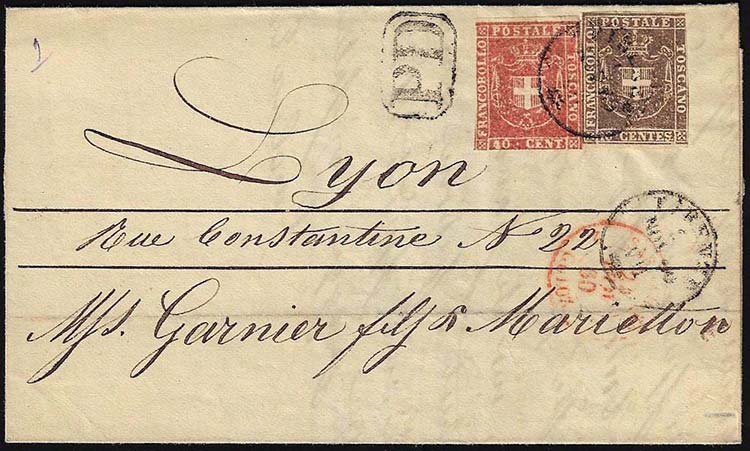 1
PD
FRANCOBOLLO
POSTALE
TOSCANO
40 CENT
FRANCOBOLLO
POSTALE
TOSCANO
CENTES
Lyon
Rue Constantine N 22
FIRENZE
NOV
60
M/s. Garnier fils & Marietton